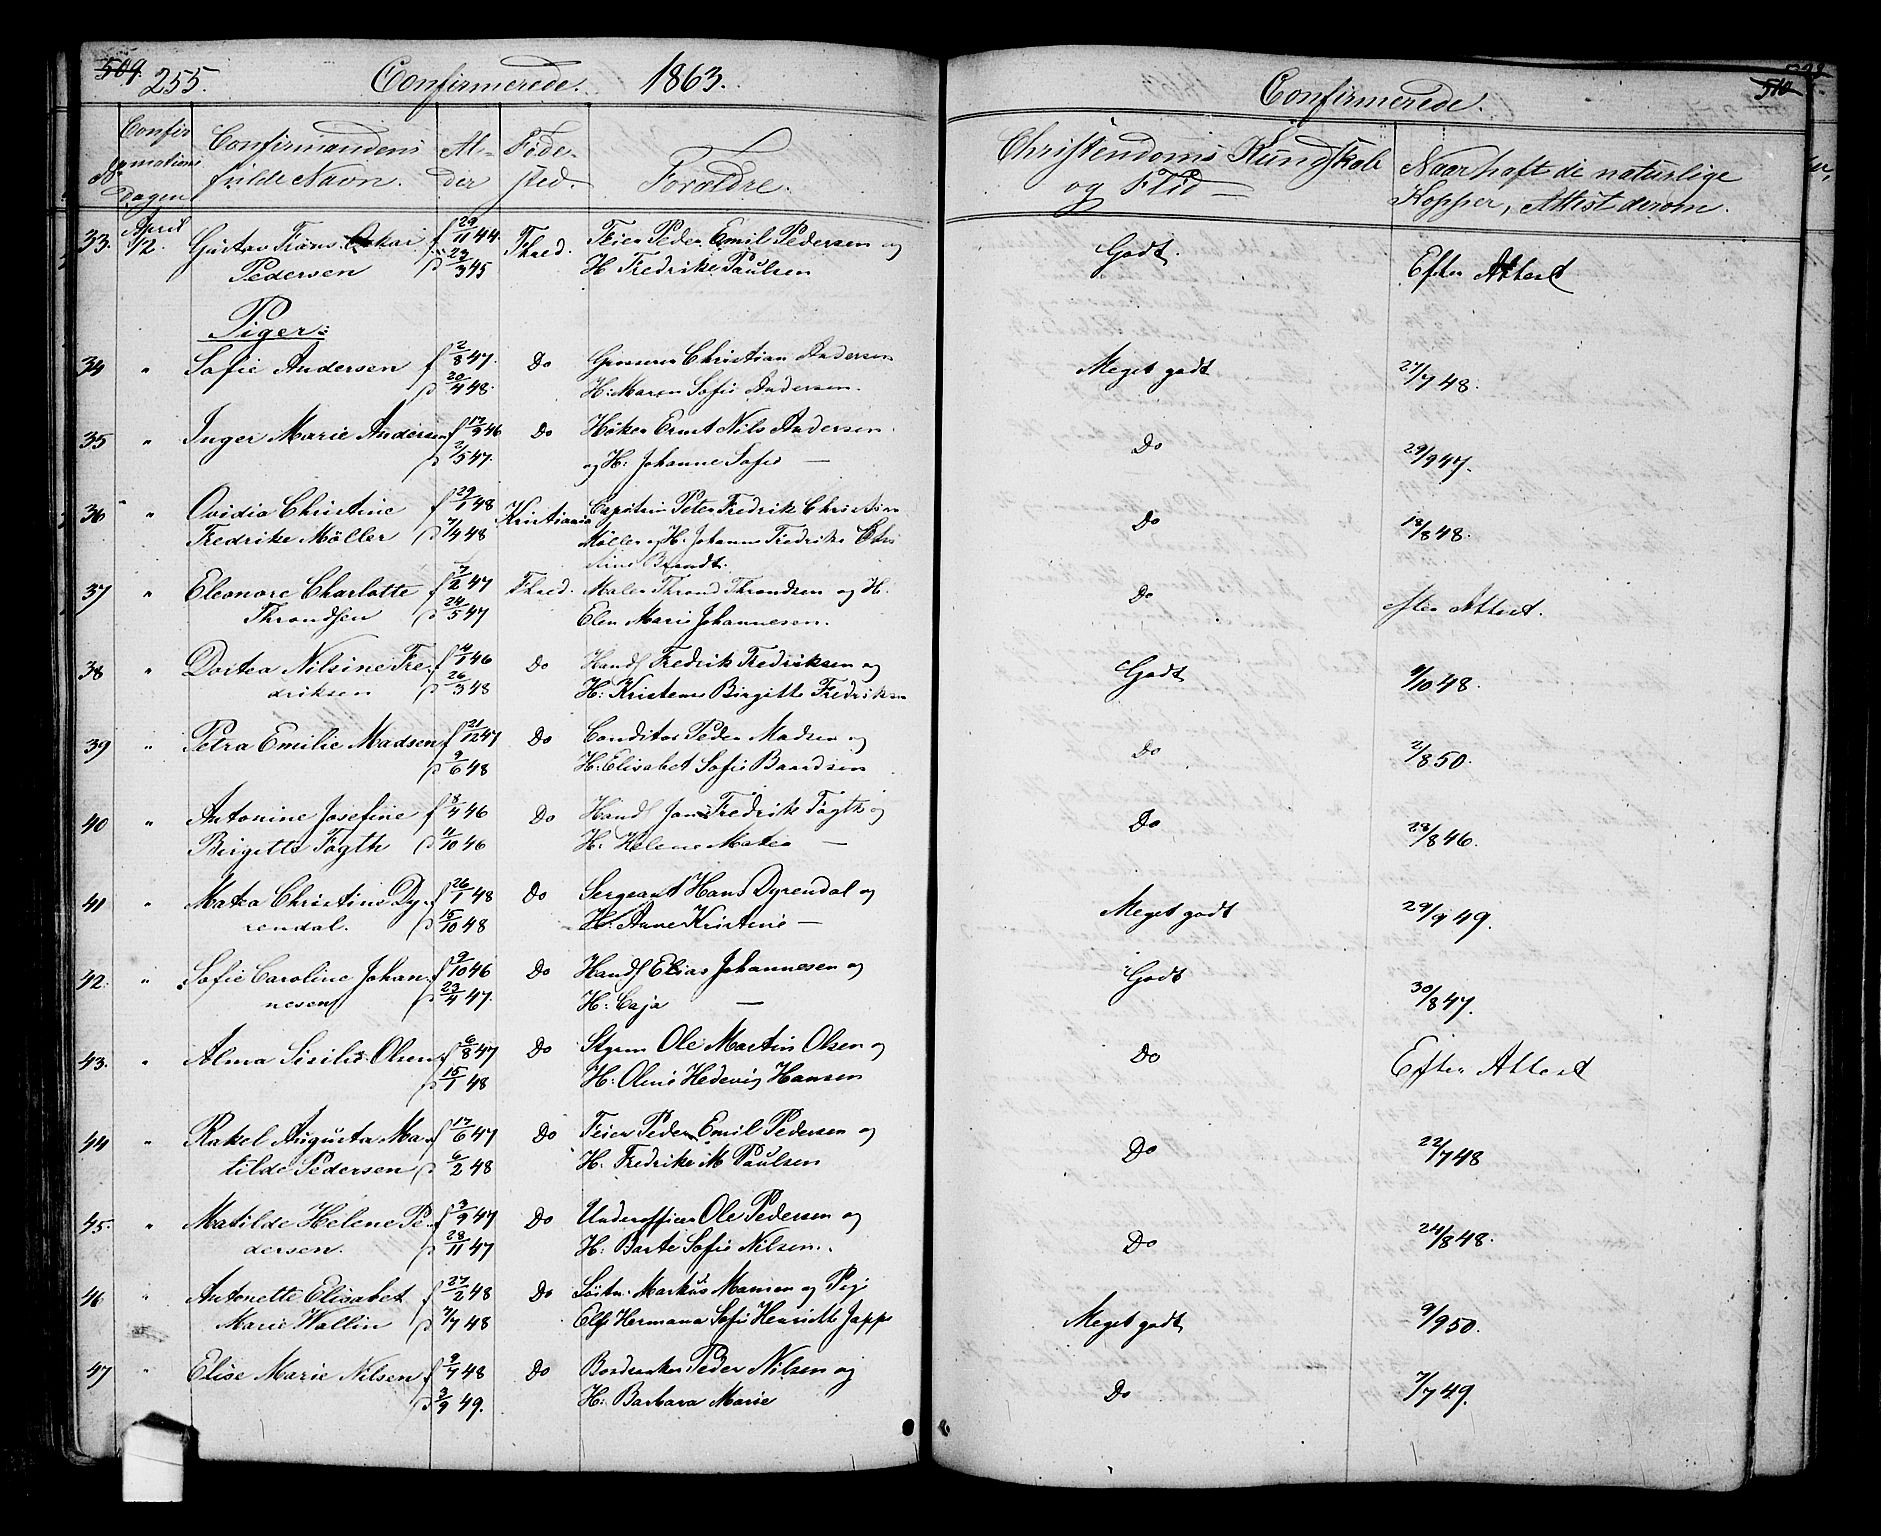 509 255. Confirmerede. 1863.
Confirmations Dagen
Confirmandens fulde Navn.
Alder
Fødested.
Forældre.
Confirmerede. 510
Christendoms Kundskab og Flid
Naar haft de naturlige Kopper, Attest derom.
33. April 12. Gustav Frans Oskar f 29/11 44. Fhred. Feier Peder Emil Pedersen og Godt. Efter Attest
Pedersen d 29/3 45 H Fredrike Paulsen
Piger:
34 " Sofie Andersen f 2/8 47. Do Christian Andersen Meget godt 27/7 48.
d 20/4 48. H: Maren Sofie Andersen.
35 " Inger Marie Andersen f 17/9 46 Do Høker Ernst Nils Andersen. Do 29/9 47.
d 2/5 47. og H: Johanne Sofie —
36 " Ovidia Christine f 29/1 48 Kristiania Capitain Peter Fredrik Christian Do 18/8 48.
Fredrike Møller d 7/4 48 Møller og H. Johanne Fredrike Chris
tine Brandt.
37 " Eleonore Charlotte f 7/2 47 Fhred. Maler Thrond Throndsen og H. Do efter Attest.
Throndsen d 24/5 47 Elen Marie Johannesen.
38 " Dortea Nilsine Fre- f 14/1 46 Do Handl Fredrik Fredriksen og Godt 9/10 48.
driksen d 26/3 48 H: Kristense Birgitte Fredriksen
39 " Petra Emilie Madsen f 21/12 47 Do Conditor Peder Madsen og Do 2/8 50.
d 9/6 48 H: Elisabet Sofie Baardsen
40 " Antonine Josefine f 8/4 46 Do Handl Jans Fredrik Fagth og Do 28/8 46.
Birgitte Fagth d 11/10 46 H: Helene Matea —
41 " Matea Christine Dy- f 26/1 48 Do Sergeant Hans Dyrendal og Meget godt 29/9 49.
rendal. d 15/10 48 H: Anne Kristine —
42. " Sofie Caroline Johan- f 9/10 46 Do Handl Elias Johannesen og Godt 30/8 47.
nesen d 23/4 47. H: Caja —
43. " Alma Sisilie Olsen f 6/8 47 Do Styrm Ole Martin Olsen og Do Efter Attest
d 15/1 48 H: Oline Hedevig Hansen
44 " Rakel Augusta Ma- f 17/6 47 Do Feier Peder Emil Pedersen og Do 22/7 48
tilde Pedersen d 6/2 48 H: Fredrike M Paulsen
45. " Matilde Helene Pe- f 3/9 47 Do Underofficer Ole Pedersen og Do 24/8 48.
dersen. d 28/11 47 H: Barte Sofie Nilsen.
46 " Antonette Elisabet f 27/2 48 Do Markus Monsen og Pige Meget godt 9/9 50.
Marie Wallin d 7/7 48 Else Hermana Sofie Henriette Jappe
47 " Elise Marie Nilsen f 9/7 48 Do Peder Nilsen og Do 7/7 49.
d 3/9 49. H: Barbara Marie